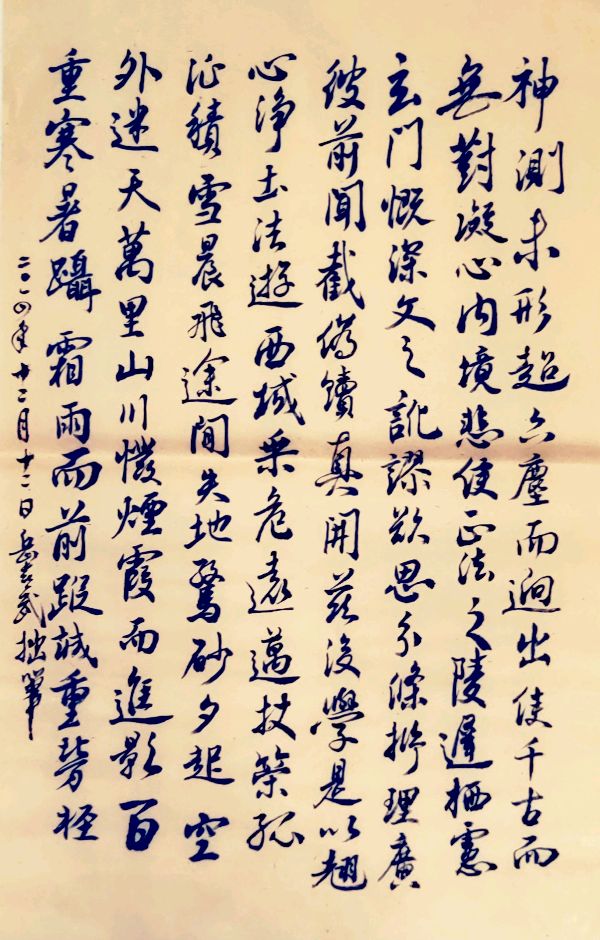 神測未形超六塵而迥出使千古而
無對凝心內境悲使正法之陵遲栖慮
玄門慨深文之訛謬欲思分條析理廣
彼前聞截偽續真開茲後學是以翹
心淨土法遊西域乘危遠邁杖策孤
征積雪晨飛途間失地驚砂夕起空
外迷天萬里山川撥煙霞而進影百
重寒暑躡霜雨而前蹤誠重勞輕
二〇一四年十二月十二日岳吉武拙筆